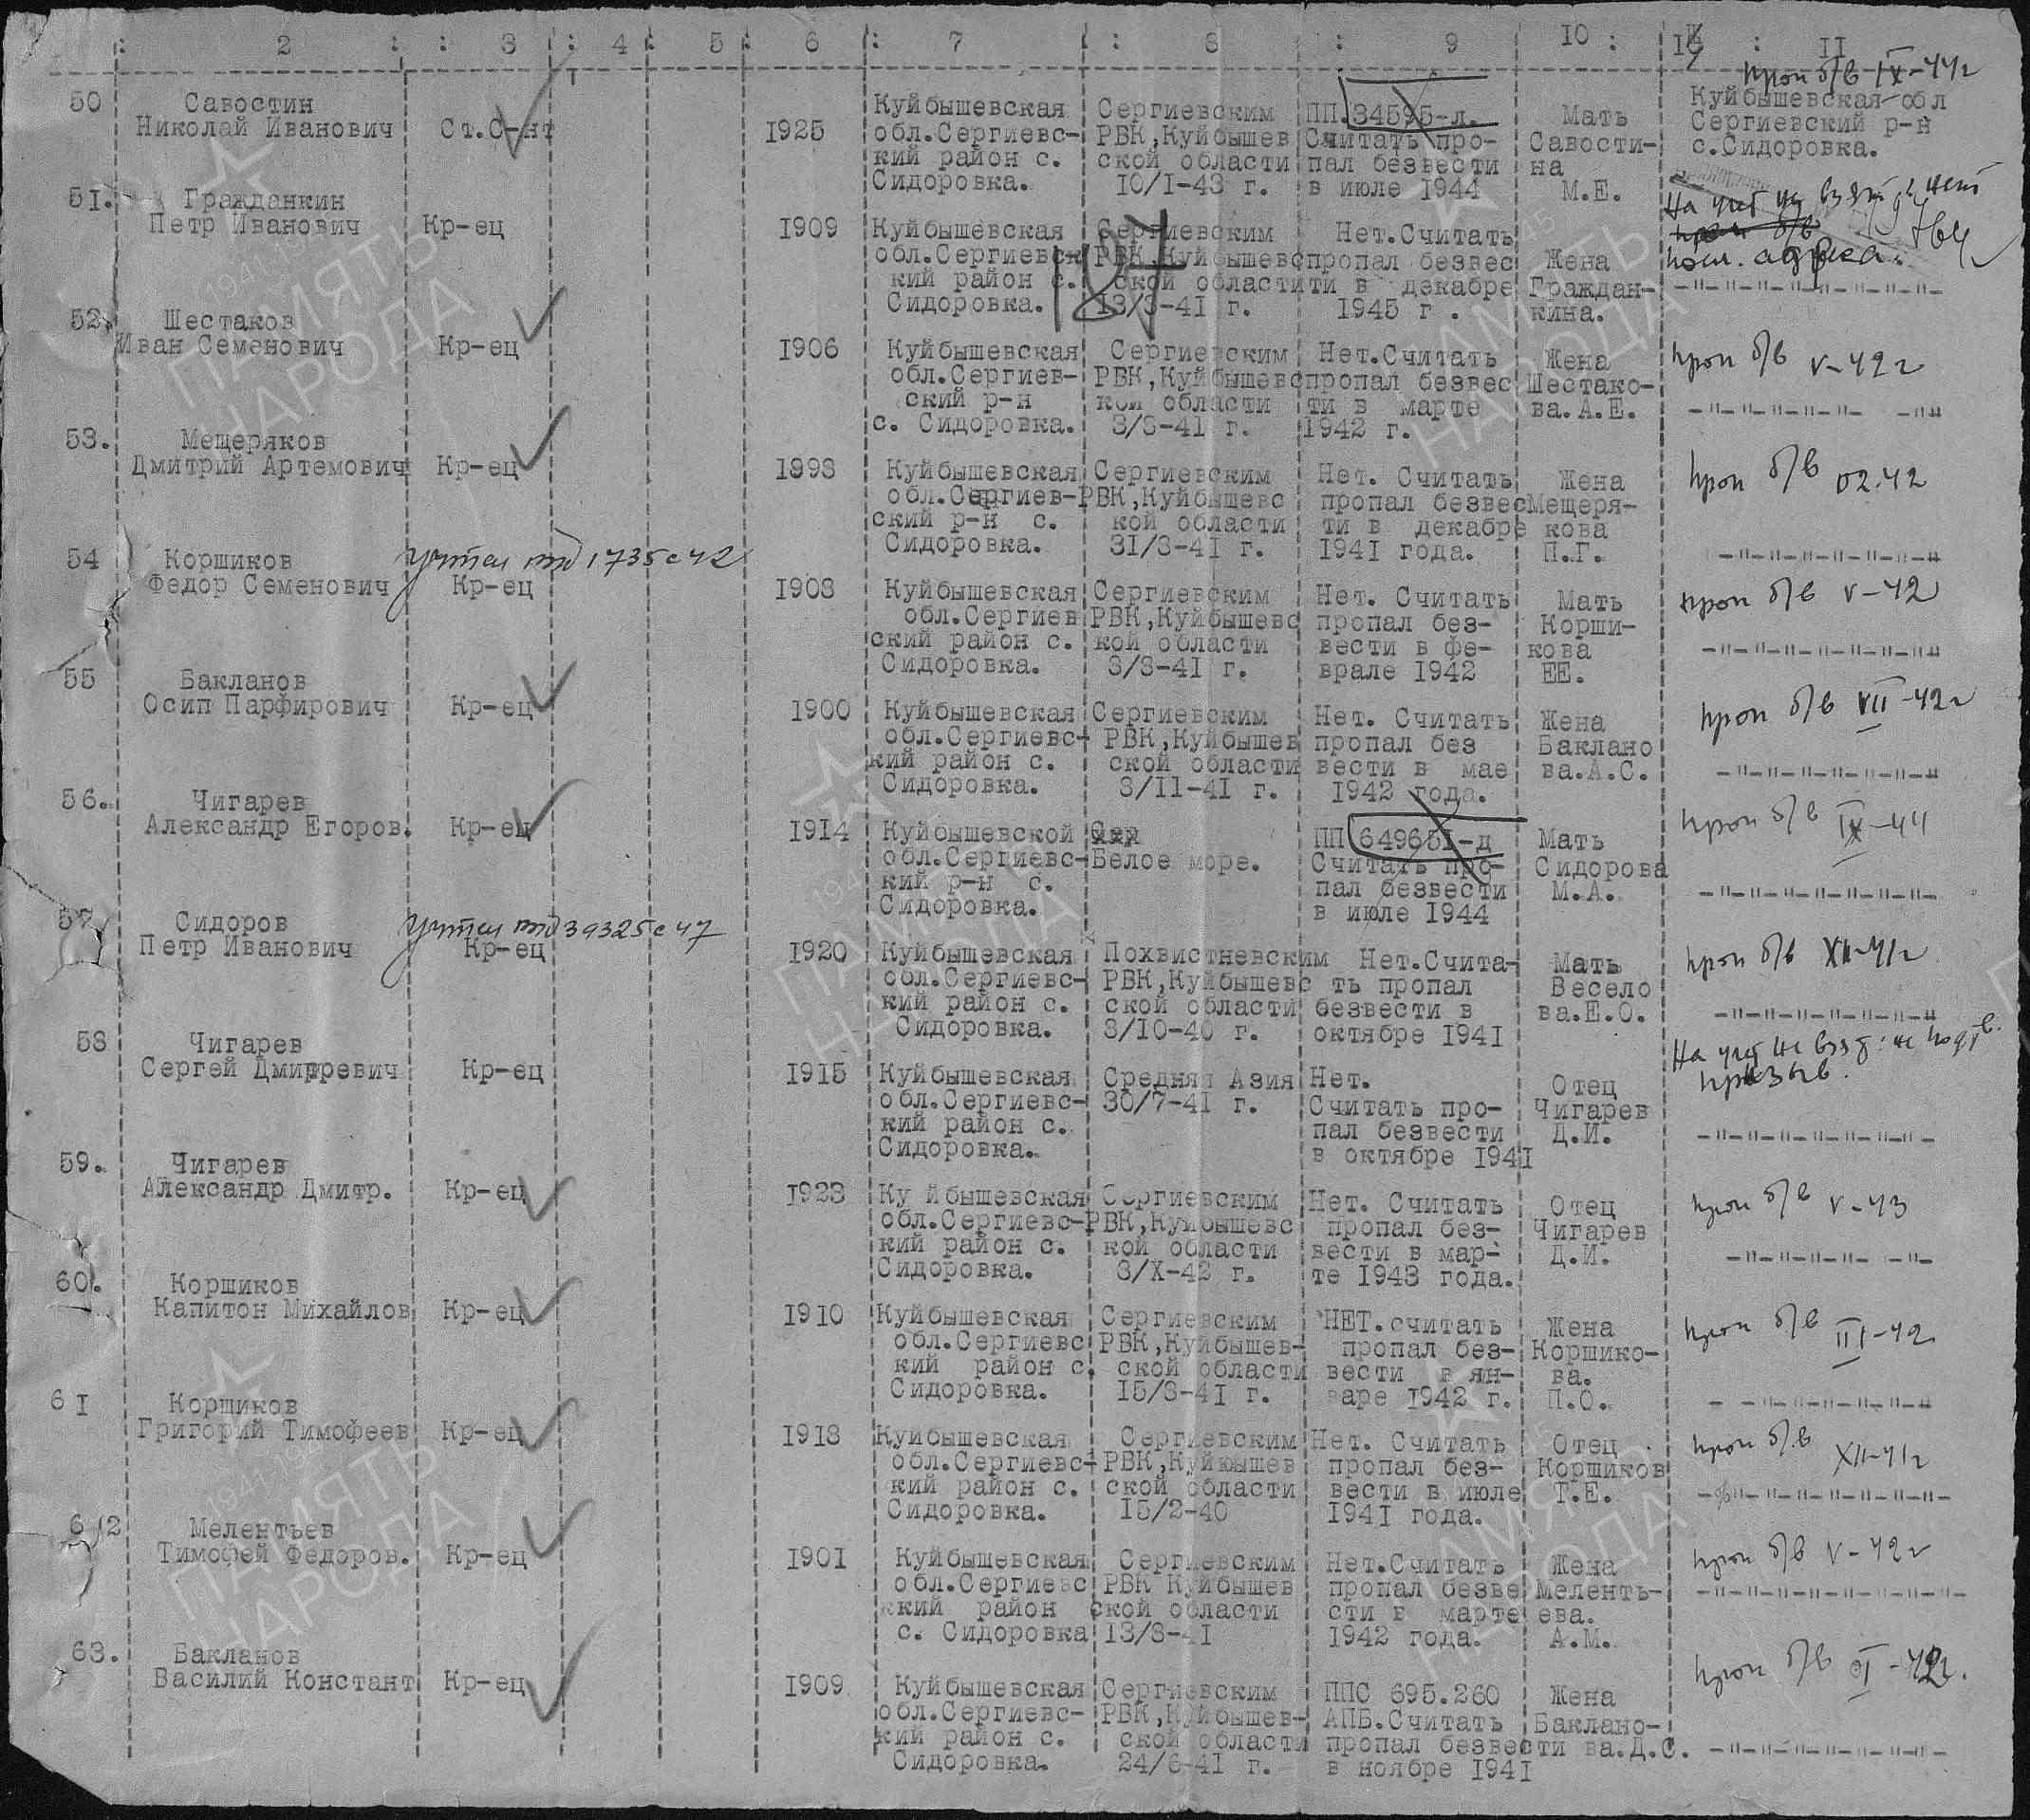 2 : : 3 : 4 : 5 : 6 : 7 : 8 : 9 : 10 : : 11
проп б/в IX-44г
50 Савостин
Николай Иванович Ст.С-нт 1925
Куйбышевская
обл.Сергиевс-
кий район с.
Сидоровка.
Сергиевским
РВК,Куйбышев
ской области
10/I-43 г.
ПП.34595-л.
Считать про-
пал безвести
в июле 1944
Мать
Савости-
на
М.Е.
Куйбышевская обл
Сергиевский р-н
с.Сидоровка.
51. Гражданкин
Петр Иванович Кр-ец 1909
Куйбышевская
обл.Сергиевск
кий район с.
Сидоровка.
Сергиевским
РВК,Куйбышевс
ской области
13/3-41 г.
Нет.Считать
пропал безвес
ти в декабре
1945 г.
Жена
Граждан-
кина.
На учет
адреса.
-"-"-"-"-"-"-"-
52. Шестаков
Иван Семенович Кр-ец 1906
Куйбышевская
обл.Сергиев-
ский р-н
с. Сидоровка.
Сергиевским
РВК,Куйбышевс
кой области
3/3-41 г.
Нет.Считать
пропал безвес
ти в марте
1942 г.
Жена
Шестако-
ва.А.Е.
проп б/в V-42г
-"-"-"-"-"-"- -"-"
53. Мещеряков
Дмитрий Артемович Кр-ец 1898
Куйбышевская
обл.Сергиев-
ский р-н с.
Сидоровка.
Сергиевским
РВК,Куйбышевс
кой области
31/3-41 г.
Нет. Считать
пропал безвес
ти в декабре
1941 года.
Жена
Мещеря-
кова
П.Г.
проп б/в 02.42
-"-"-"-"-"-"-"-"
54 Коршиков
Федор Семенович Кр-ец 1908
учтен 1735с42
Куйбышевская
обл.Сергиев
ский район с.
Сидоровка.
Сергиевским
РВК,Куйбышевс
кой области
3/3-41 г.
Нет. Считать
пропал без-
вести в фе-
врале 1942
Мать
Корши-
кова
ЕЕ.
проп б/в V-42
-"-"-"-"-"-"-"-"
55 Бакланов
Осип Парфирович Кр-ец 1900
Куйбышевская
обл.Сергиевс-
кий район с.
Сидоровка.
Сергиевским
РВК,Куйбышев
ской области
3/11-41 г.
Нет. Считать
пропал без
вести в мае
1942 года.
Жена
Баклано
ва.А.С.
проп б/в VII-42г
-"-"-"-"-"-"-"-"
56. Чигарев
Александр Егоров. Кр-ец 1914
Куйбышевской
обл.Сергиевс-
кий р-н с.
Сидоровка.
Белое море.
ПП 649651-д
Считать про-
пал безвести
в июле 1944
Мать
Сидорова
М.А.
проп б/в IX-44
-"-"-"-"-"-"-"-"-
57. Сидоров
Петр Иванович Кр-ец 1920
учтен 39325с47
Куйбышевская
обл.Сергиевс-
кий район с.
Сидоровка.
Похвистневским
РВК,Куйбышевс
ской области
3/10-40 г.
Нет.Счита-
ть пропал
безвести в
октябре 1941
Мать
Весело
ва.Е.О.
проп б/в XII-41г
-"-"-"-"-"-"-"-"
58 Чигарев
Сергей Дмитревич Кр-ец 1915
Куйбышевская
обл.Сергиевс-
кий район с.
Сидоровка.
Средняя Азия
30/7-41 г.
Нет.
Считать про-
пал безвести
в октябре 1941
Отец
Чигарев
Д.И.
На учет не взят: не подтв.
призыв.
-"-"-"-"-"-"-"-"-
59. Чигарев
Александр Дмитр. Кр-ец 1923
Ку йбышевская
обл.Сергиевс-
кий район с.
Сидоровка.
Сергиевским
РВК,Куйбышевс
кой области
3/X-42 г.
Нет. Считать
пропал без-
вести в мар-
те 1943 года.
Отец
Чигарев
Д.И.
проп б/в V-43
-"-"-"-"-"- -"-
60. Коршиков
Капитон Михайлов Кр-ец 1910
Куйбышевская
обл.Сергиевс
кий район с.
Сидоровка.
Сергиевским
РВК,Куйбышев-
ской области
15/3-41 г.
НЕТ.считать
пропал без-
вести в ян-
варе 1942 г.
Жена
Коршико-
ва.
П.О.
проп б/в III-42
- -"-"-"-"-"-"-"
61 Коршиков
Григорий Тимофеев Кр-ец 1918
Куйбышевская
обл.Сергиевс-
кий район с.
Сидоровка.
Сергиевским
РВК,Куйюышев
ской области
15/2-40
Нет. Считать
пропал без-
вести в июле
1941 года.
Отец
Коршиков
Т.Е.
проп б/в XII-41г
-%"-"-"-"-"-"-"-"-
62 Мелентьев
Тимофей Федоров. Кр-ец 1901
Куйбышевская
обл.Сергиевс
кий район
с. Сидоровка
Сергиевским
РВК Куйбышев
ской области
13/3-41
Нет.Считать
пропал безве
сти в марте
1942 года.
Жена
Меленть-
ева.
А.М.
проп б/в V-42г
-"-"-"-"-"-"-"-"-"-
63. Бакланов
Василий Констант Кр-ец 1909
Куйбышевская
обл.Сергиевс-
кий район с.
Сидоровка.
Сергиевским
РВК,Куйбышев-
ской области
24/6-41 г.
ППС 695.260
АПБ.Считать
пропал безвести
в ноябре 1941
Жена
Баклано-
ва.Д.С.
проп б/в
-"-"-"-"-"-"-"-"-
ПАМЯТЬ
НАРОДА